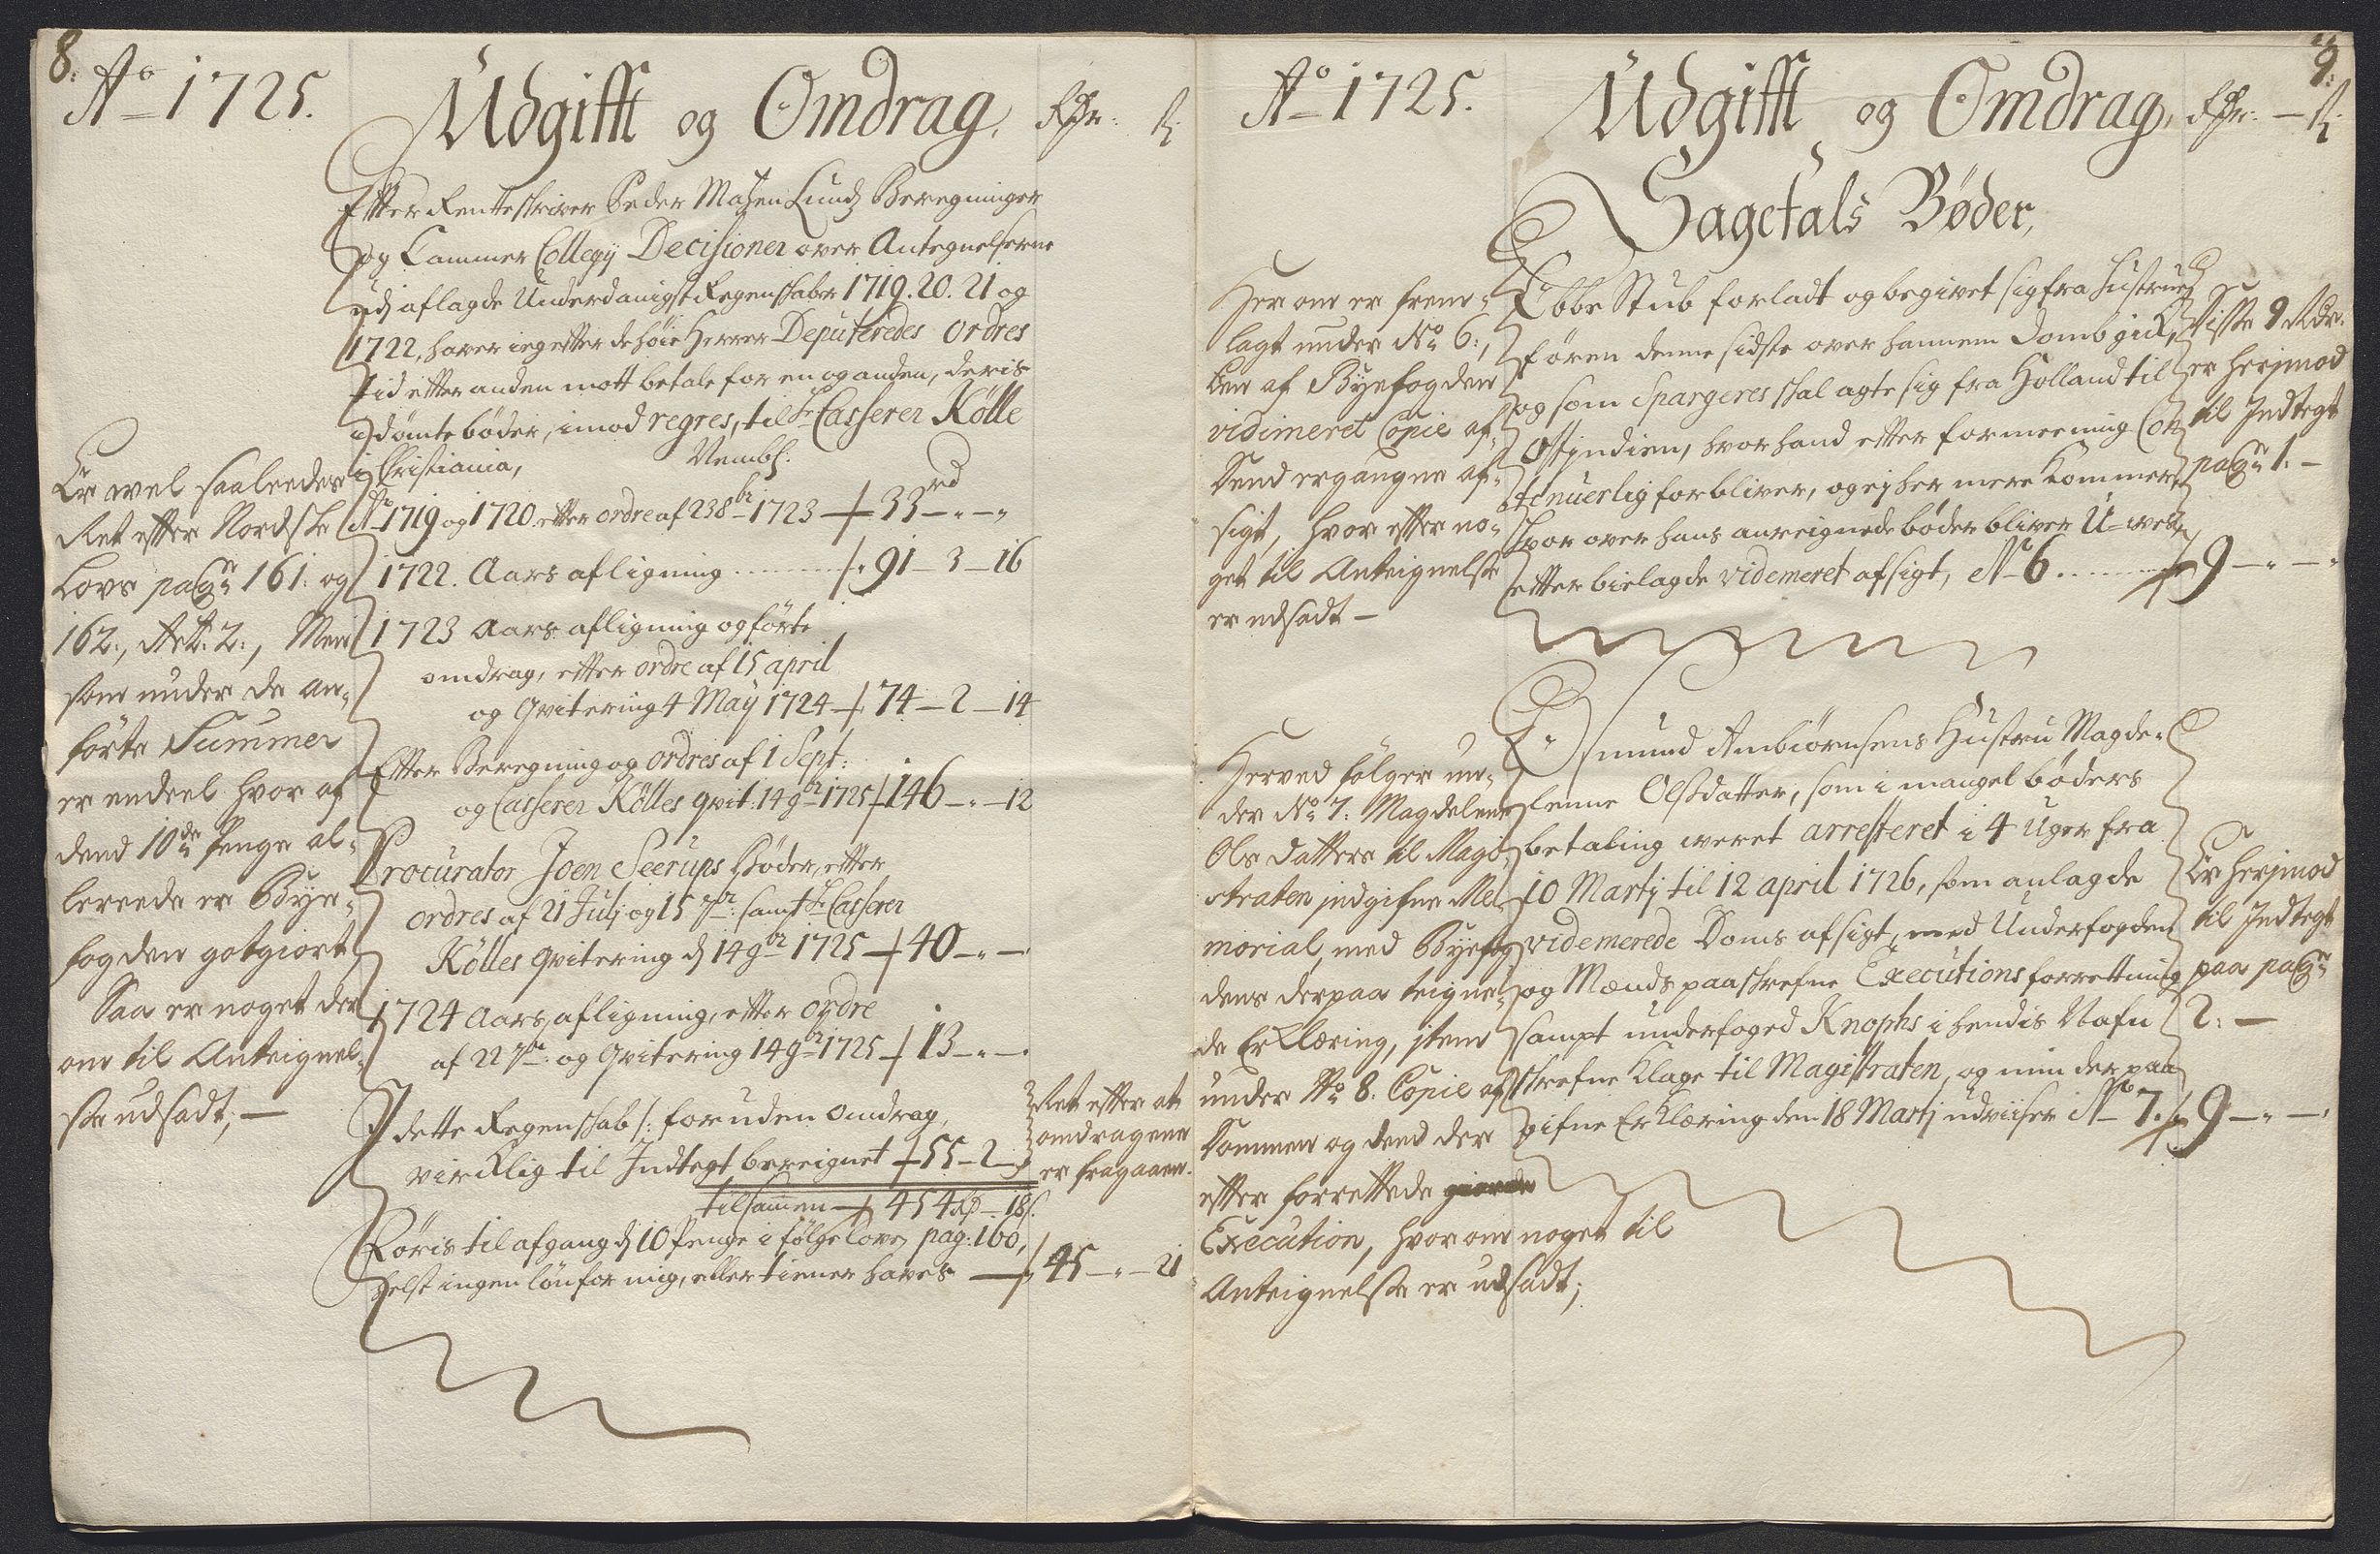 8.
Ao 1725.
Udgifft og Omdrag,
Rdr: ß
Efter Rentteskriver Peder Madsen Lunds Beregninger
og Cammer Collegij Decisioner over Antegnelserne
ved aflagde Underdanigst Regenskaber 1719. 20. 21 og
1722, haver ieg efter de høie Herrer Deputeredes ordres
tid efter anden mott betale for en og anden, deris
idømte bøder, imod regres, til Hr Casserer Kölle
i Christiania, Nembl:
Ao 1719 og 1720 etter ordre af 23 8br 1723 33 rd - „ - „
1722. Aars afligning ........ 91 - 3 - 16
1723 Aars afligning og førte
omdrag, etter ordre af 15 april
og qvitering 4 May 1724 74 - 2 - 14
Etter Beregning og ordres af 1 Sept:
og Casserer Kölles qvit: 14 9br 1725 146 - „ - 12
Procurator Joen Seerups Bøder, etter
ordres af 21 Julj og 15 7br: samt Hr Casserer
Kölles qvitering d 14 9br 1725 40 - „ -
1724 Aars, afligning, etter ordre
af 22 7br: og qvitering 14 9br 1725 13 - „ - „
J dette Regenskab /: foruden omdrag,
virklig til Indtegt bereignet 55 - 2 - „
tilsammen 454 Rd - 18 s.
Føris til afgang d 10 Penge i følge Loven pag: 160,
helst ingen løn for mig, eller tiener haves 45 - „ - 21
Er vel saaleedes
Ret efter Nordske
Lovs pag: 161. og
162., Art: 2., Men
som under de an-
førte Summer
er endeel hvor af
dend 10de Penge al-
lereede er Bye-
fogden gotgiort,
Saa er noget der
om til Anteignel-
se udsadt; -
Ret efter at
omdragene
er fragaaen.
9.
Ao 1725.
Udgifft og Omdrag,
Rdr: - ß
Sagefals Bøder,
Ebbe Stub forladt og begivet sig fra hustrue
føren denne sidste over hannem Domb gik,
og som Spargeres skal agte sig fra Holland til
Ostjndien, hvor hand etter formeening Con
tinuerlig forbliver, og ej her mere kommer,
hvor over hans anreignede bøder bliver U-vis,
etter bielagde videmeret afsigt, No 6 ........ 9 - „ - „
Her om er frem-
lagt under No 6:,
Een af Byefogden
vidimeret Copie af
dend ergangne af-
sigt, hvor efter no-
get til Anteignelse
er udsadt -
Disse 9 Rdr.
er herjmod
til Indtegt
pag: 1. -
Osmund Ambiørnsens Hustru Magde-
lenne Olsdatter, som i mangel bøders
betaling weret arresteret i 4 Uger fra
10 Martj til 12 april 1726, som anlagde
videmerede Doms afsigt, med Underfogden
og Mænds paaskrefne Executions forrettning
sampt underfoged Knophs i hendis Nafn
skrefne Klage til Magistraten, og min der paa
gifne Erklæring den 18 Martj udviiser No 7. 9 - „ - „
Herved følger un-
der No 7. Magdelene
Ols datters til Magi-
straten indgifne Me-
morial, med Byefog-
dens derpaa teigne-
de Erklæring, item
under No 8. Copie af
Dommen og dend der
efter forrettede
Execution, hvor om noget til
Anteignelse er udsadt;
Er herjmod
til Indtegt
paa pag:
2. -